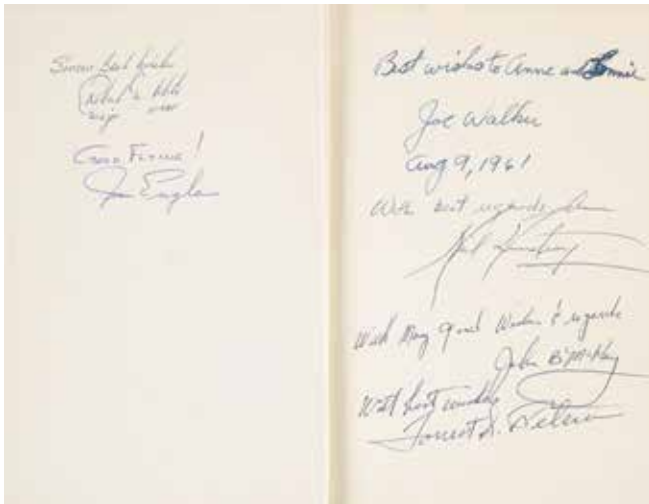 Sincere Best Wishes
Robert
Major
Good Fortune!
Joe Engle
Best wishes to Anne and Lonnie
Joe Walker
Aug 9, 1961
With best regards from
Neil Armstrong
With Many Good Wishes & regards
John B. McKay
With best wishes
Forrest S. Petersen